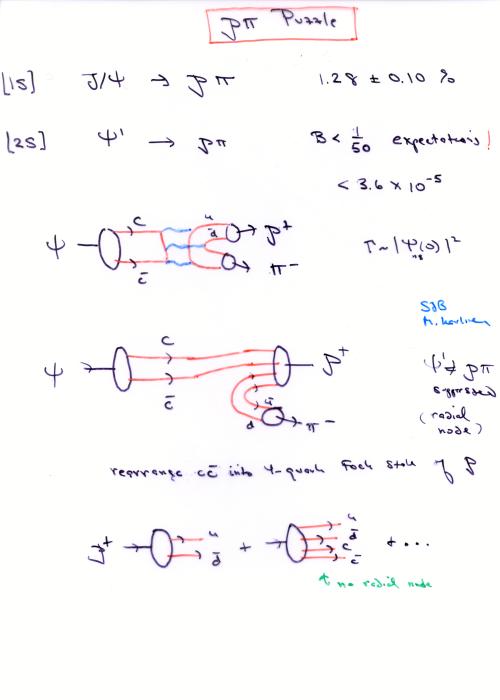 ρπ Puzzle
[1S] J/ψ → ρπ 1.28 ± 0.10 %
[2S] ψ' → ρπ B < 1/50 expectations!
< 3.6 × 10⁻⁵
c u
ψ d̄ ρ⁺ Γ ~ |ψ(0)|²
c̄ π⁻
SJB
M. Karliner
c
ψ ρ⁺ ψ' ↛ ρπ
c̄ suppressed
ū (radial
d π⁻ node)
rearrange cc̄ into 4-quark Fock state of ρ
u u
ρ⁺ → d̄ + → d̄ c c̄ + ...
↑ no radial node